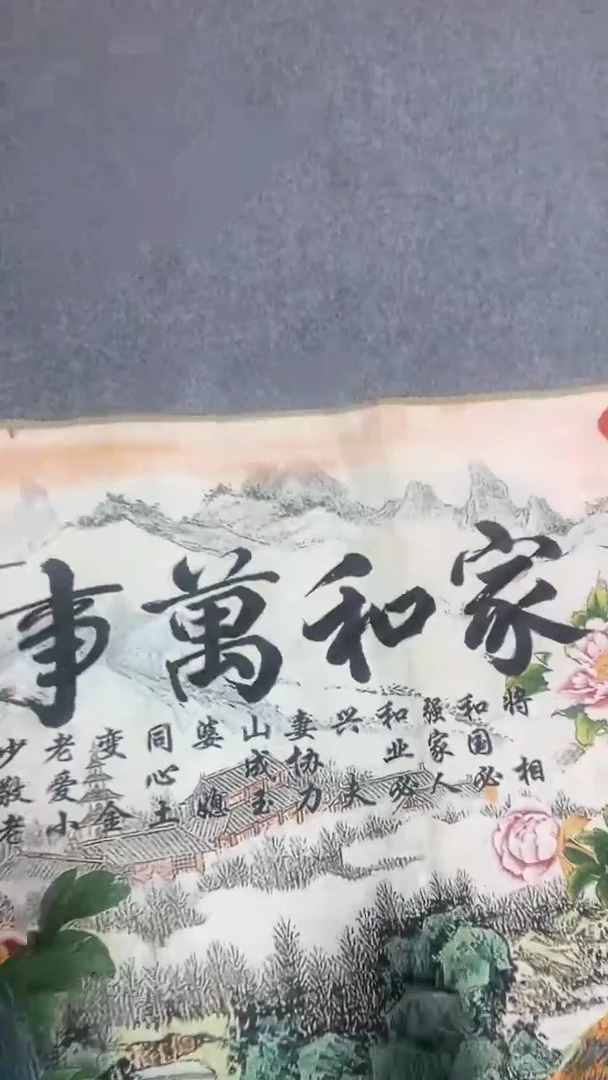 家和萬事
将相
和国必
强家人
和业必
兴夫
妻协力
山成玉
婆媳
同心土
变金
老爱小
少敬老